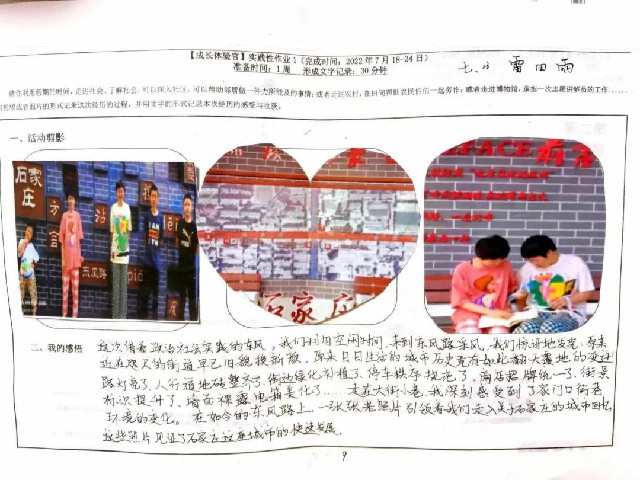 【成长体验营】实践性作业1（完成时间：2022年7月18-24日）
准备时间：1周 形成文字记录：30分钟
七、3 雷田雨
请你利用假期的时间，走进社会、了解社会，可以深入社区，可以帮助邻居做一件力所能及的事情；或者走进农村，在田间和农民伯伯一起劳作；或者走进博物馆，承担一次志愿讲解员的工作……
一、活动剪影
石家庄
方言
东风路
FACE
石家庄
二、我的感悟
这次借着政治社会实践的东风，我们利用空闲时间，来到东风路采风，我们惊讶地发现：原来
近在咫尺的街道早已旧貌换新颜，原来日日生活的城市历史竟有如此翻天覆地的变迁
路灯亮了，人行道地砖整齐了，街边绿化补植了，停车秩序规范了，商店招牌统一了，街景
标识提升了，墙面裸露电箱美化了……走在大街小巷，我深刻感受到了家门口街巷
环境的变化。在如今的东风路上，一张张老照片引领着我们走入关于石家庄的城市回忆，
这些照片见证了石家庄这座城市的快速发展